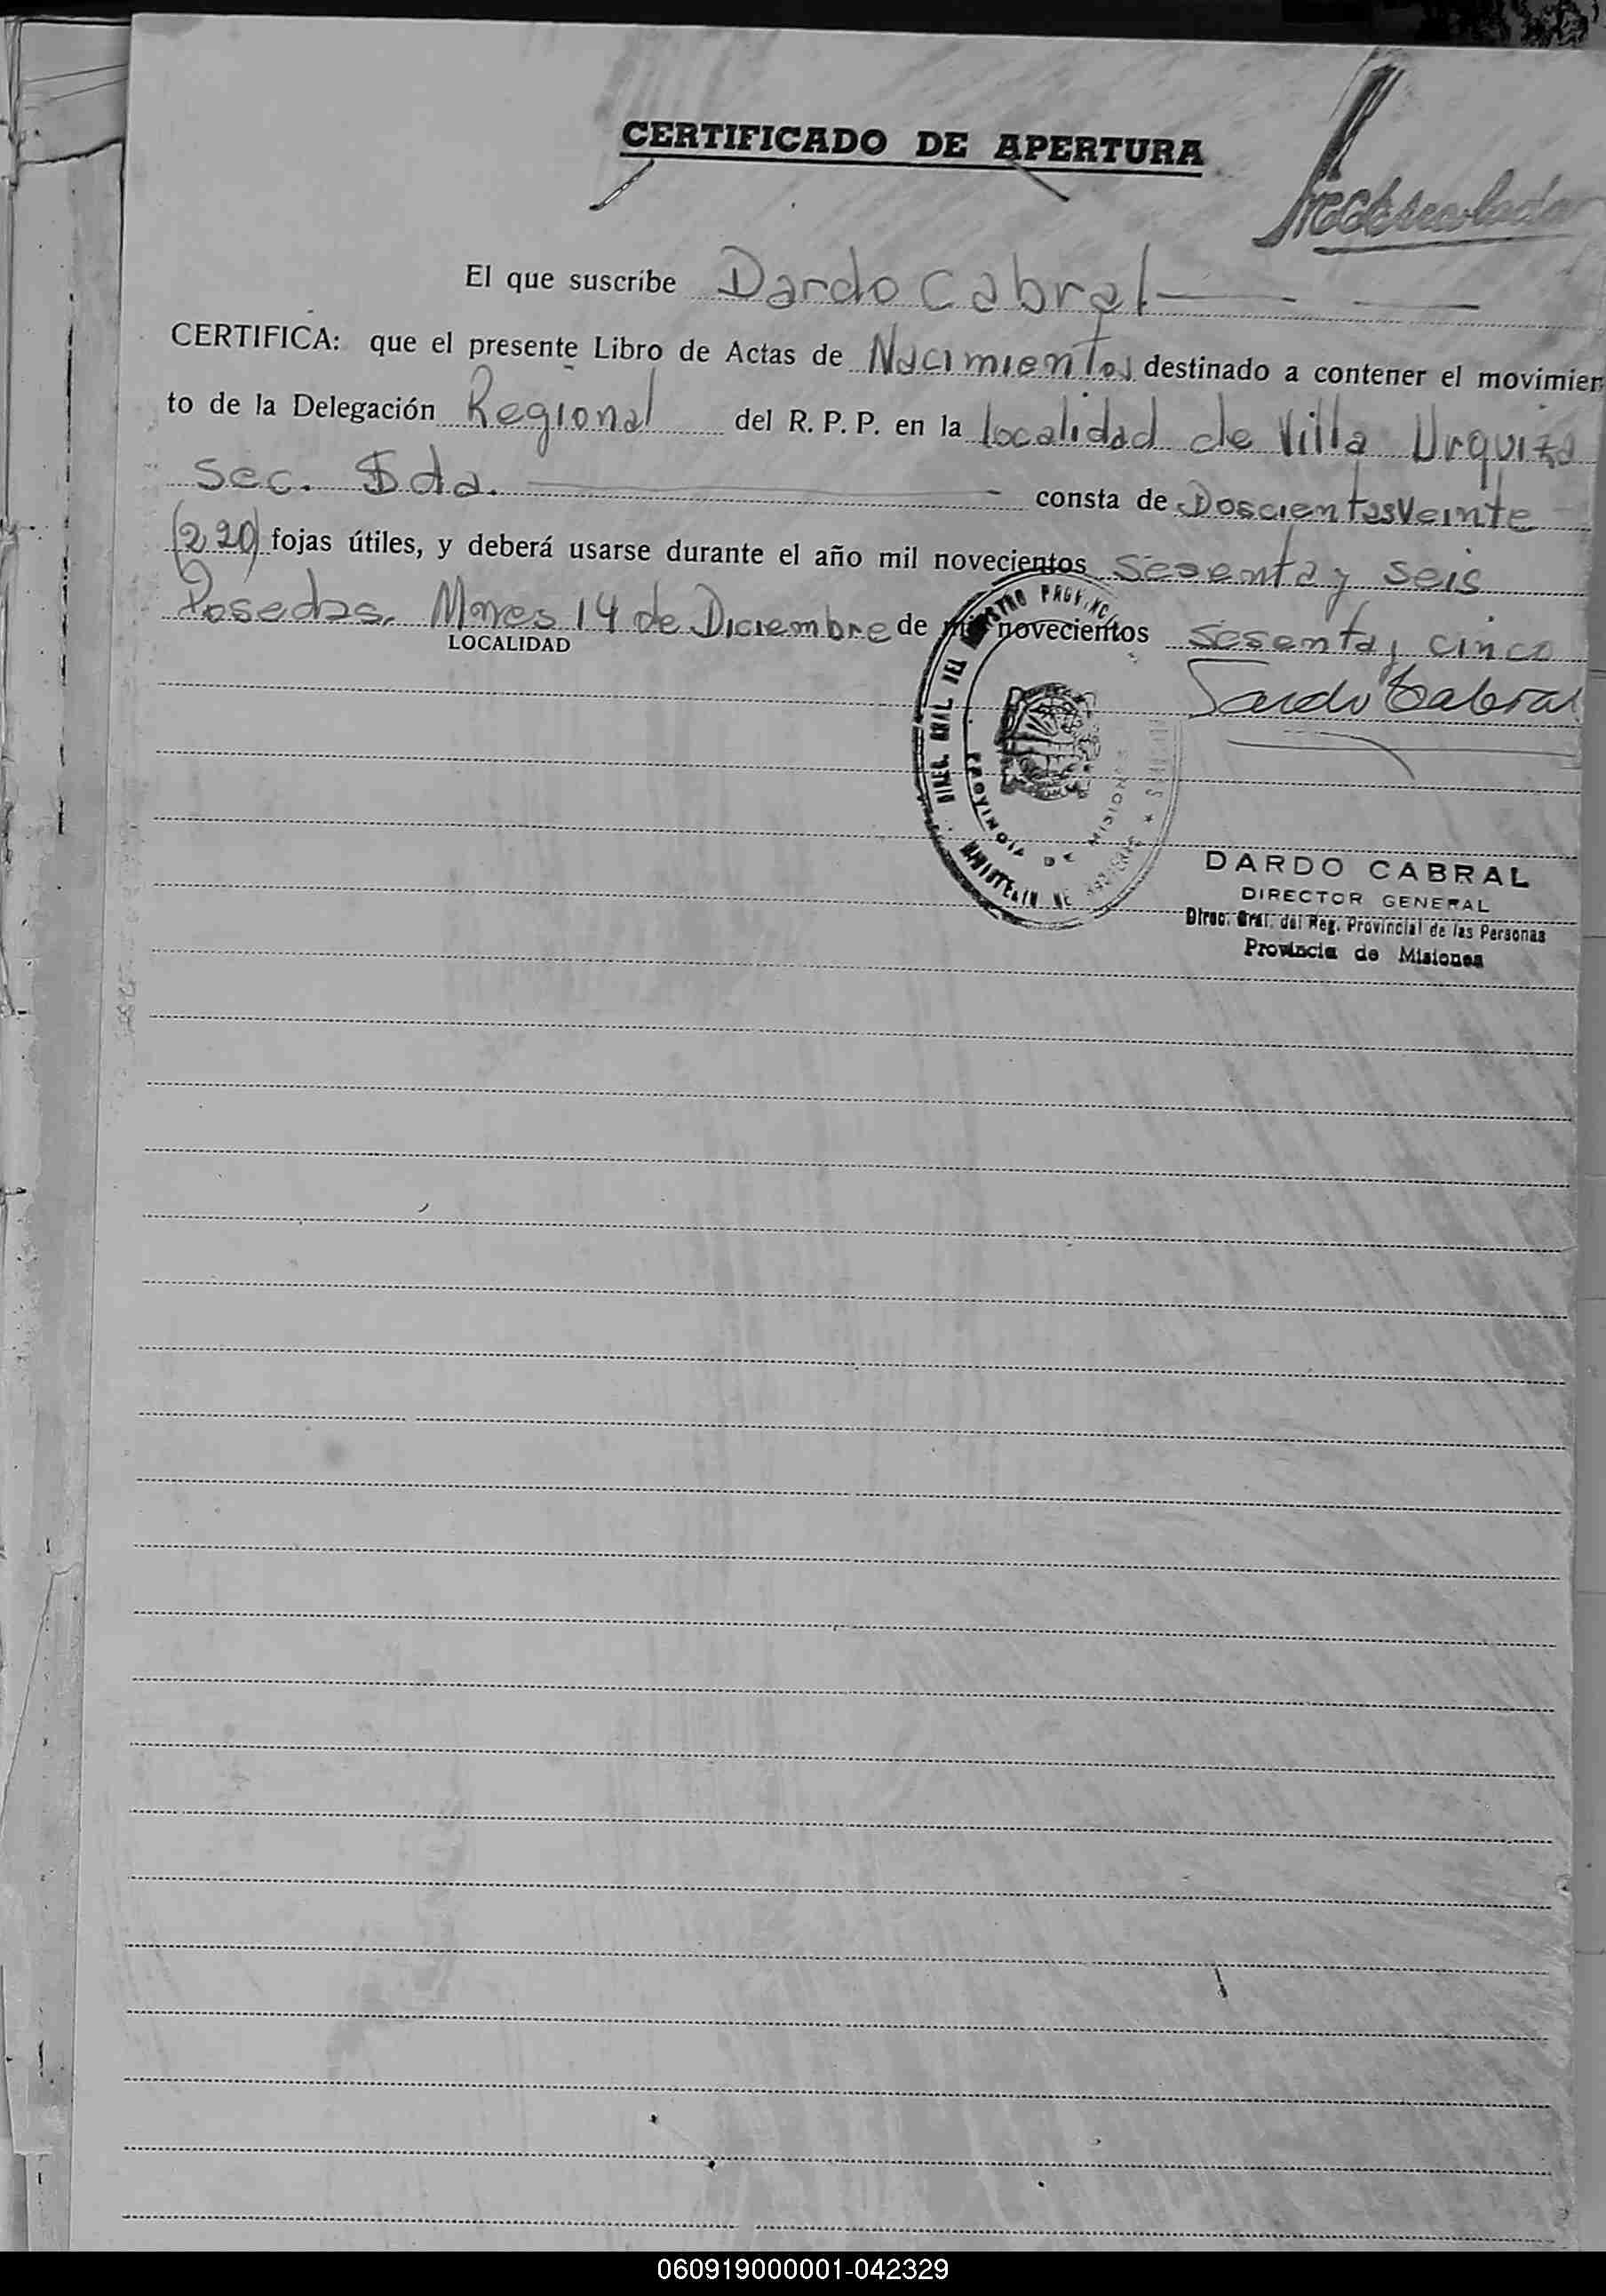 CERTIFICADO DE APERTURA
El que suscribe Dardo Cabral
CERTIFICA: que el presente Libro de Actas de Nacimientos destinado a contener el movimien
to de la Delegación Regional del R. P. P. en la Localidad de Villa Urquiza
Sec. consta de Doscientas Veinte
(220) fojas útiles, y deberá usarse durante el año mil novecientos Sesenta y seis
Posadas, Mnes 14 de Diciembre de mil novecientos Sesenta y cinco
LOCALIDAD
Dardo Cabral
PROVINCIA DE MISIONES
DARDO CABRAL
DIRECTOR GENERAL
Direc. Gral. del Reg. Provincial de las Personas
Provincia de Misiones
060919000001-042329